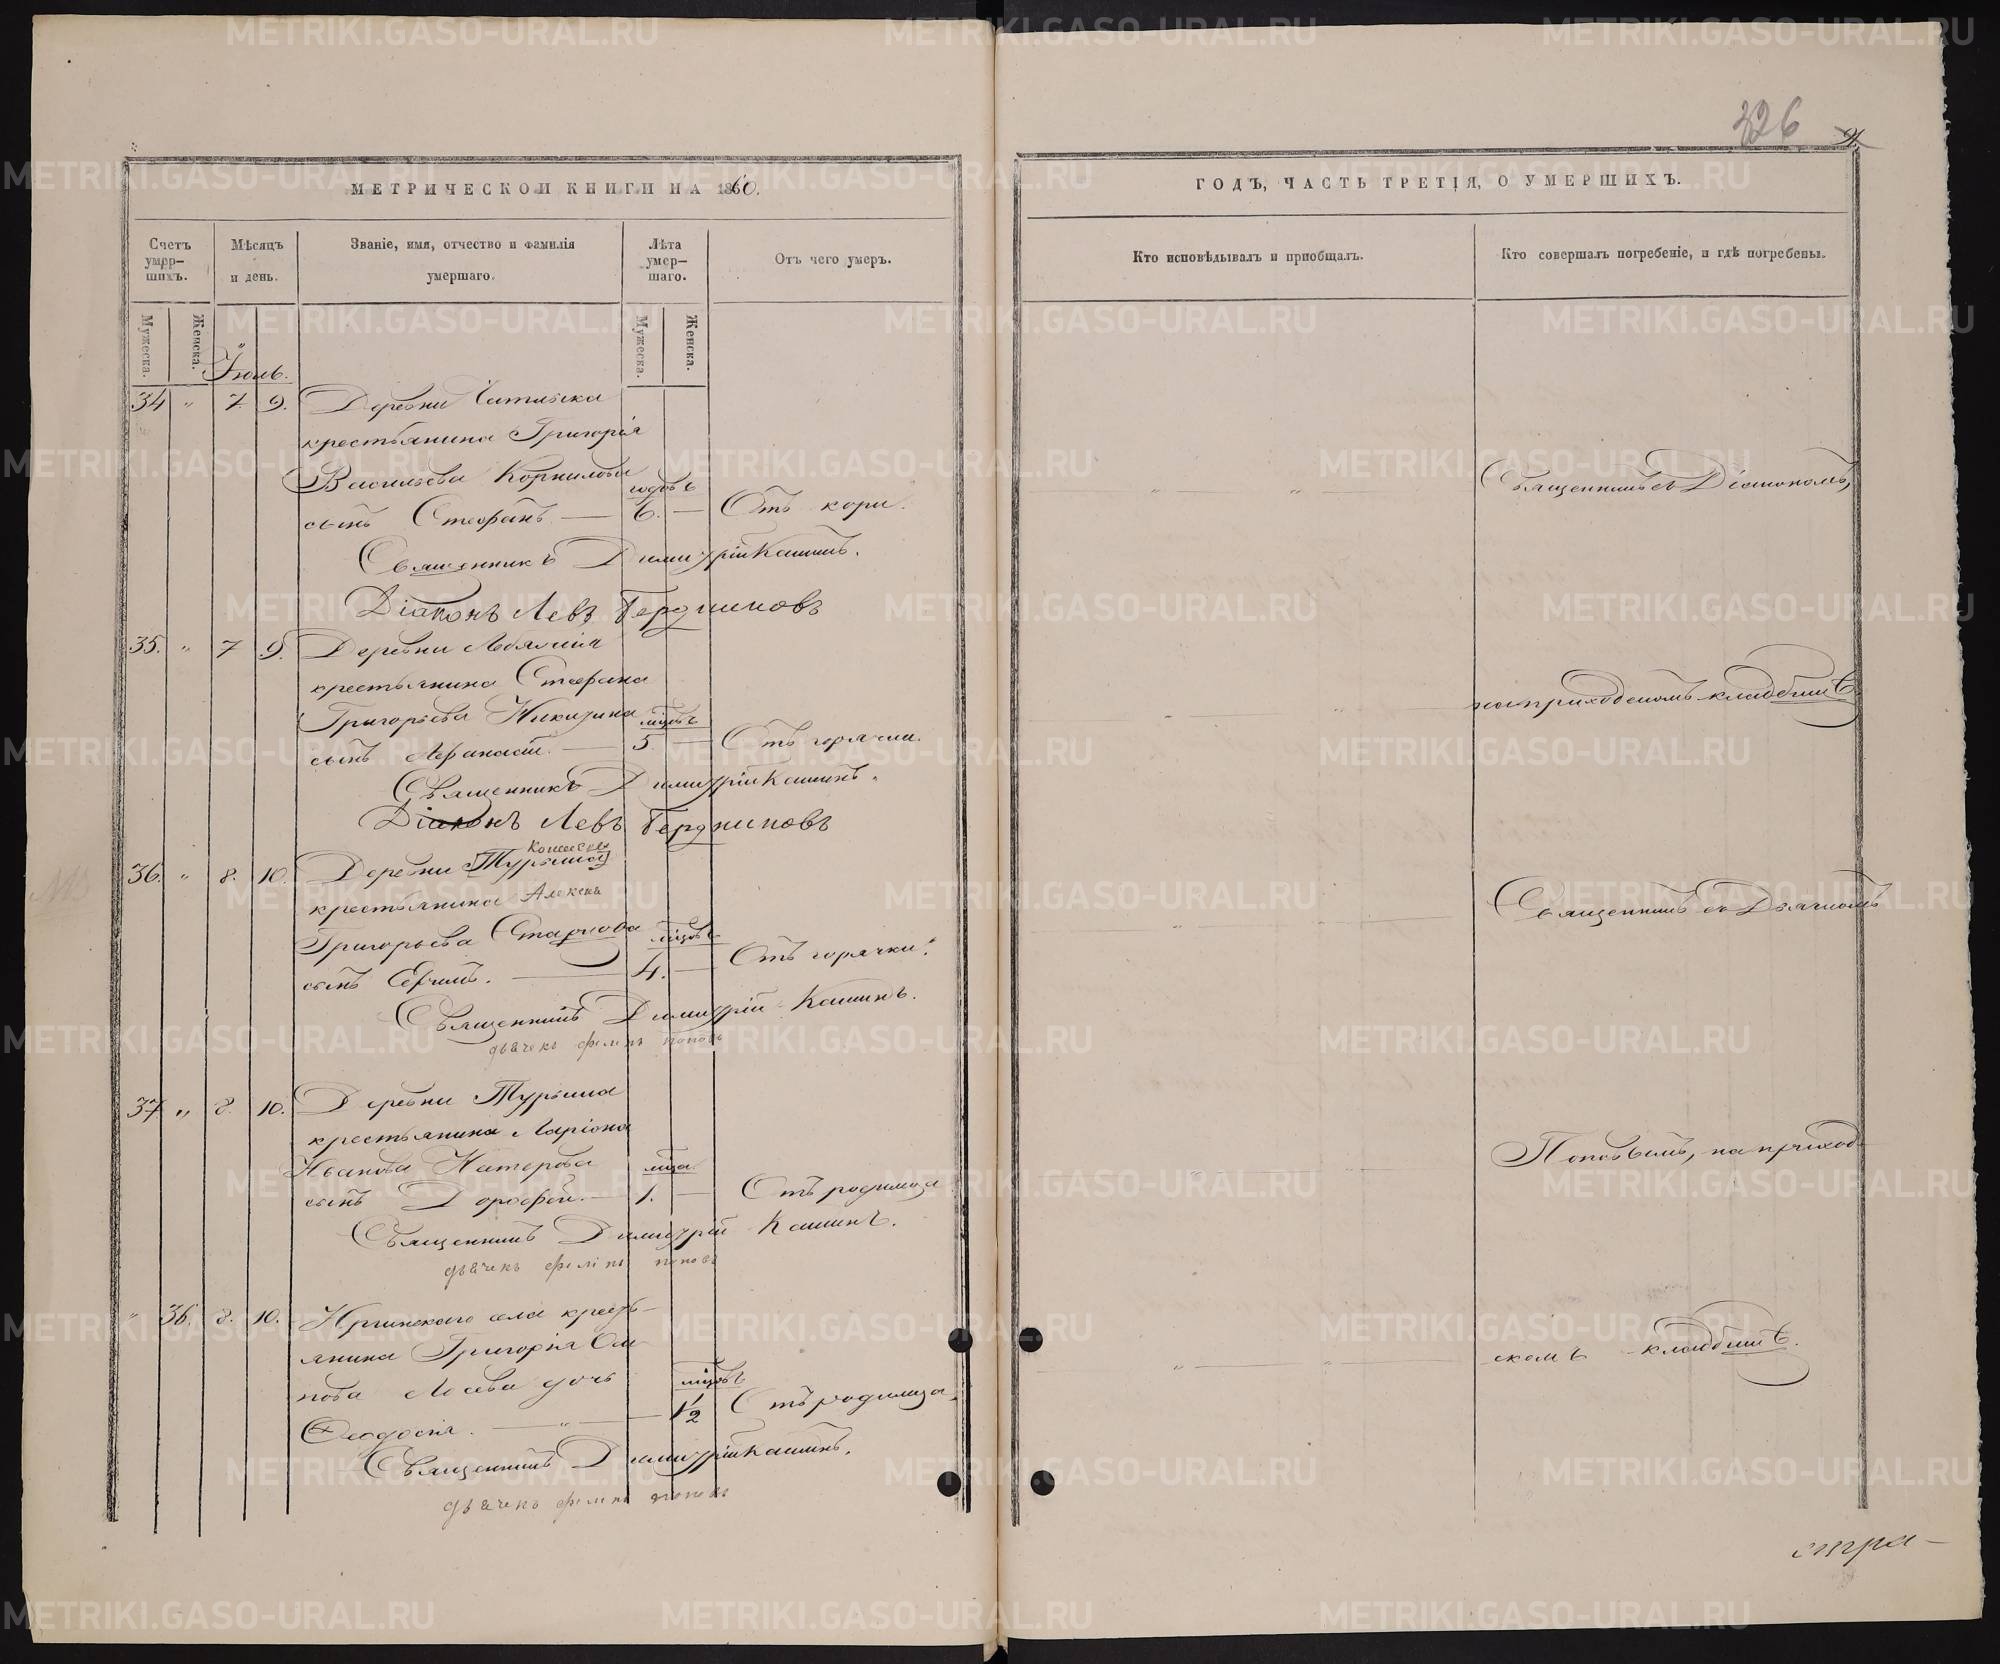 326
МЕТРИЧЕСКОЙ КНИГИ НА 1860.
ГОДЪ, ЧАСТЬ ТРЕТІЯ, О УМЕРШИХЪ.
Счетъ умер-шихъ.
Мѣсяцъ и день.
Званіе, имя, отчество и фамилія умершаго.
Лѣта умер-шаго.
Отъ чего умеръ.
Кто исповѣдывалъ и пріобщалъ.
Кто совершалъ погребеніе, и гдѣ погребены.
Мужеска.
Женска.
Мужеска.
Женска.
Іюль.
34 " 7. 9. Деревни
крестьянина Григорія
Васильева Корнилова годовъ
сынъ Стефанъ — 6. — Отъ кори.
Священникъ Димитрій Кашинъ.
Діаконъ Левъ
Священникъ съ Діакономъ,
35. " 7 9. Деревни
крестьянина Стефана
Григорьева Никитина лѣтъ
сынъ Афанасій. — 5 — Отъ горячки.
Священникъ Димитрій Кашинъ.
Діаконъ Левъ
на приходскомъ кладбищѣ
36. " 8. 10. Деревни Турыша
крестьянина Алексея
Григорьева Старкова
сынъ Ефимъ. — 4. — Отъ горячки.
Священникъ Димитрій Кашинъ.
дьячекъ Филипъ Поповъ
Священникъ съ Дьячкомъ
37 " 8. 10. Деревни Турыша
крестьянина Ларіона
Иванова лѣта
сынъ Дорофей. — 1. — Отъ родимца
Священникъ Димитрій Кашинъ.
дьячекъ Филипъ Поповъ
Поповымъ, на приход-
" 36. 8. 10. Иргинскаго села кресть-
янина Григорія Оси-
пова Лосева дочь
Феодосія. — " — 1/2 Отъ родимца.
Священникъ Димитрій Кашинъ.
дьячекъ Филипъ Поповъ
скомъ кладбищѣ.
стра-
METRIKI.GASO-URAL.RU